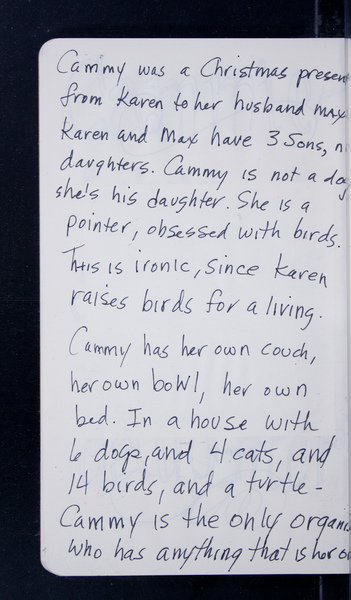 Cammy was a Christmas present
from Karen to her husband Max
Karen and Max have 3 sons, n
daughters. Cammy is not a dog
she's his daughter. She is a
pointer, obsessed with birds.
This is ironic, since Karen
raises birds for a living.
Cammy has her own couch,
her own bowl, her own
bed. In a house with
6 dogs, and 4 cats, and
14 birds, and a turtle -
Cammy is the only organi
who has anything that is her o